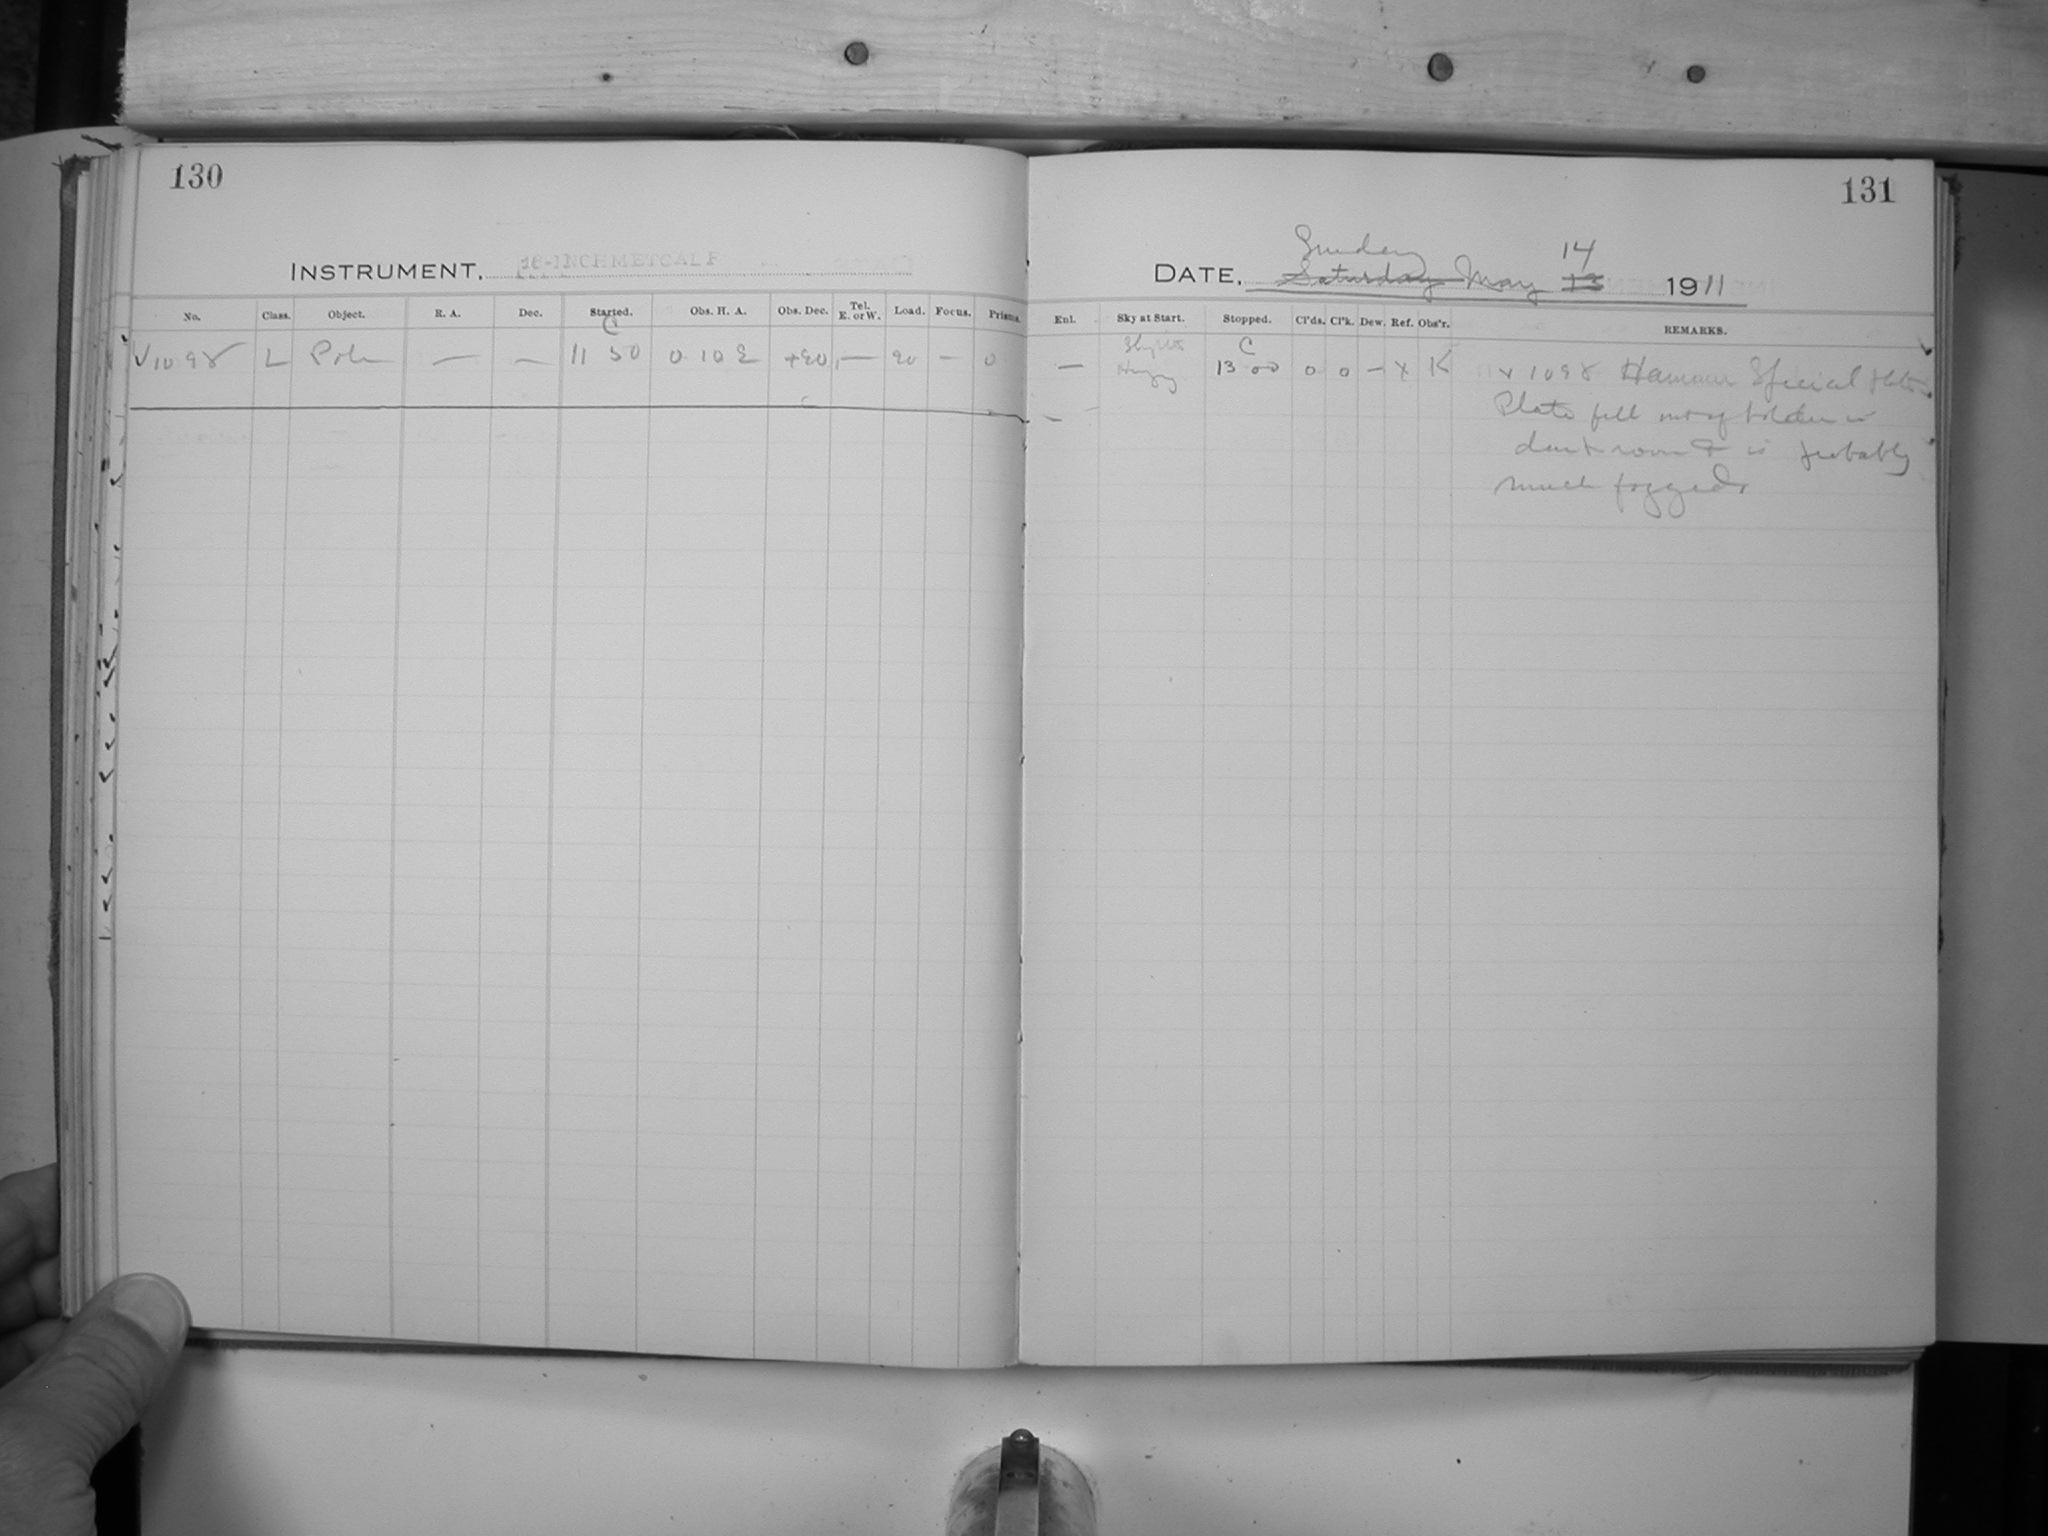 130
131
INSTRUMENT, 16-INCH METCALF
Sunday 14
DATE, Saturday May 13 1911
No. Class. Object. R. A. Dec. Started. Obs. H. A. Obs. Dec. Tel. E. or W. Load. Focus. Prisms.
Enl. Sky at Start. Stopped. Cl'ds. Cl'k. Dew. Ref. Obs'r. REMARKS.
C
V 1098 L Pole — — 11 50 0 10 E +90 — 90 — 0
Slightly C
— Hazy 13 00 0 0 — x K
v 1098 Hammer Special Plate
Plate fell out of holder in
dark room & is probably
much fogged.
—